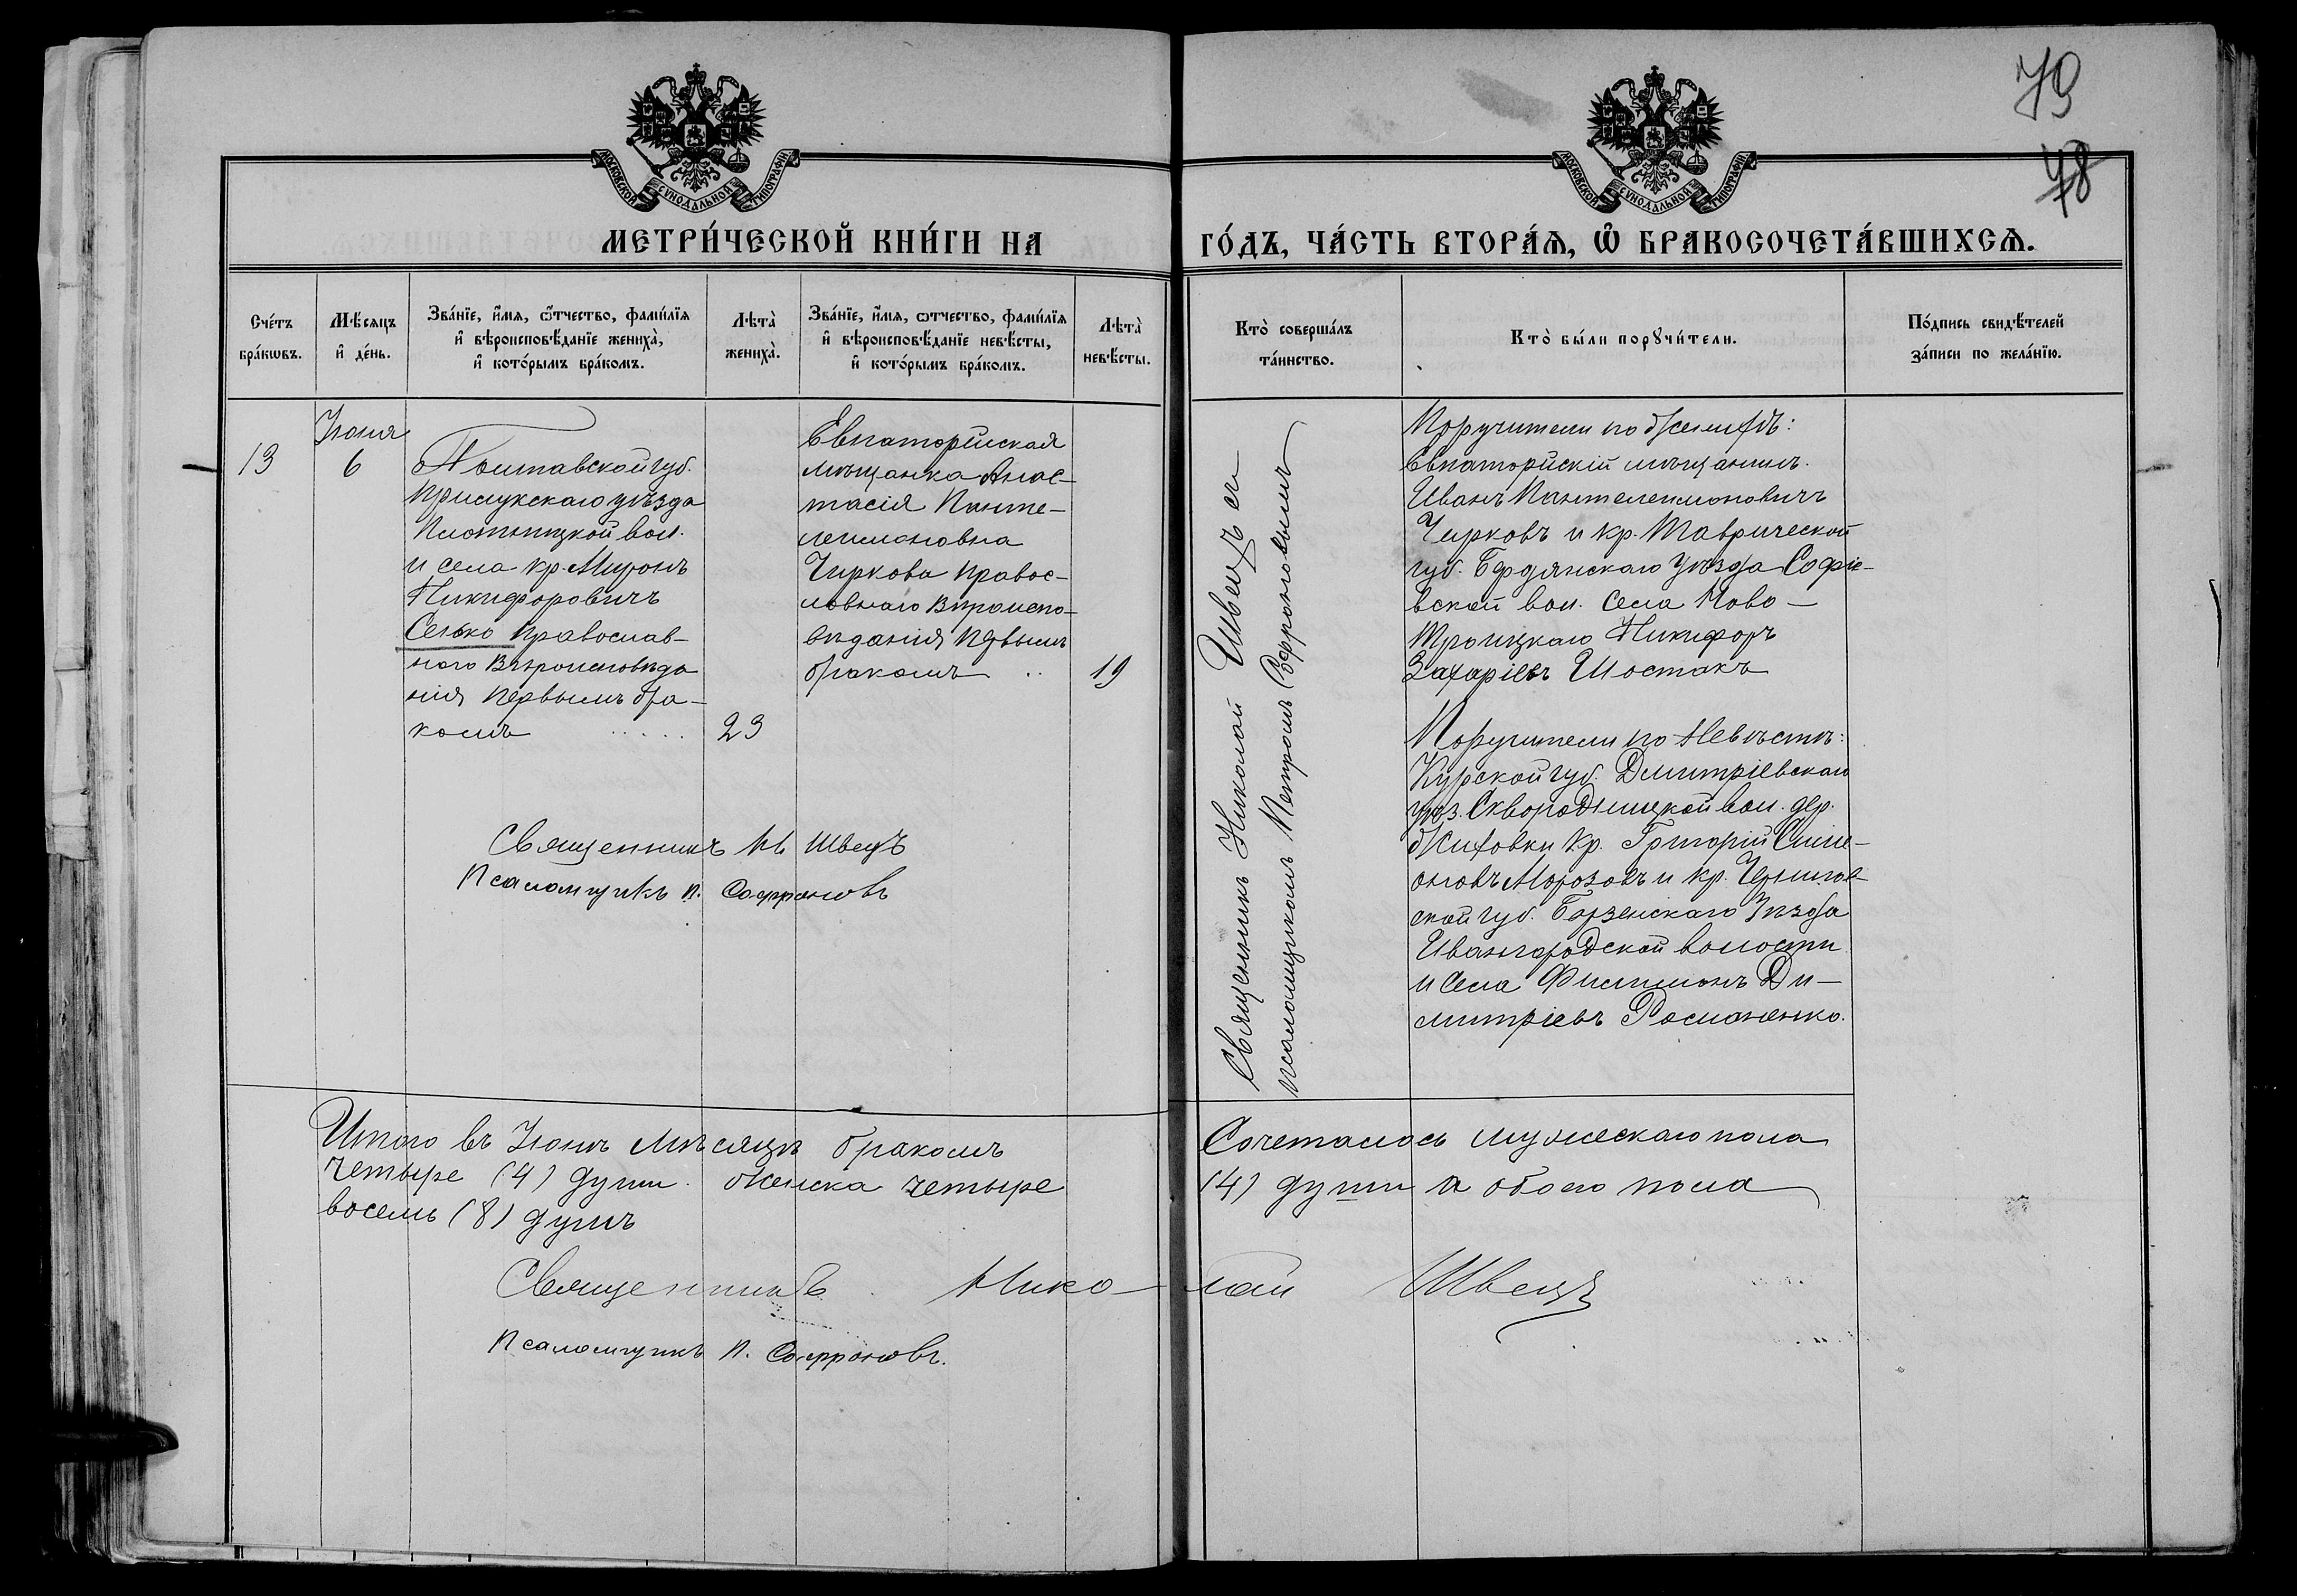 79
78
МОСКОВСКОЙ СѴНОДАЛЬНОЙ ТИПОГРАФІИ
МОСКОВСКОЙ СѴНОДАЛЬНОЙ ТИПОГРАФІИ
МЕТРИ́ЧЕСКОЙ КНИ́ГИ НА
ГО́ДЪ, ЧА́СТЬ ВТОРА́Ѧ, Ѽ БРАКОСОЧЕТА́ВШИХСѦ.
Сче́тъ
бра́кѡвъ.
Мѣ́сяцъ
и҆ де́нь.
Зва́нїе, и҆́мя, ѻ҆́тчество, фами́лїя
и҆ вѣроисповѣ́данїе жениха̀,
и҆ кото́рымъ бра́комъ.
Лѣта̀
жениха̀.
Зва́нїе, и҆́мя, ѻ҆́тчество, фами́лїя
и҆ вѣроисповѣ́данїе невѣ́сты,
и҆ кото́рымъ бра́комъ.
Лѣта̀
невѣ́сты.
Кто̀ соверша́лъ
та́инство.
Кто̀ бы́ли порꙋчи́тели.
По́дпись свидѣ́телей
за́писи по жела́нїю.
13
Іюня
6
Полтавской губ.
Прилукскаго уѣзда
вол.
и села кр. Миронъ
Никифоровичъ
Сенько православ-
наго Вѣроисповѣда
нія первымъ бра-
комъ
23
Евпаторійская
мѣщанка Анас-
тасія Панте-
леимоновна
Чиркова Правос-
лавнаго Вѣроиспо-
вѣданія первымъ
бракомъ
19
Священникъ Николай Швецъ съ
псаломщикомъ Петромъ Софроновымъ
Поручители по Женихѣ:
Евпаторійскій мѣщанинъ
Иванъ Пантелеимоновичъ
Чирковъ и кр. Таврической
губ. Бердянскаго уѣзда Софіе-
вской вол. села Ново-
Троицкаго Никифоръ
Захаріевъ Шостакъ
Поручители по Невѣстѣ:
Курской губ. Дмитріевскаго
уѣз. Сковороднищкой вол. дер.
Жиховки кр. Григорій Симе-
оновъ Морозовъ и кр. Чернигов-
ской губ. Борзенскаго Уѣзда
Ивангородской волости
и села Филимонъ Ди-
митріевъ Романенко.
Священникъ Н. Швецъ
Псаломщикъ П. Софроновъ
Итого въ Іюнѣ Мѣсяцѣ бракомъ Сочеталось мужескаго пола
четыре (4) души. Женска четыре (4) души а обоего пола
восемь (8) душъ
Священникъ Николай Швецъ
Псаломщикъ П. Софроновъ.